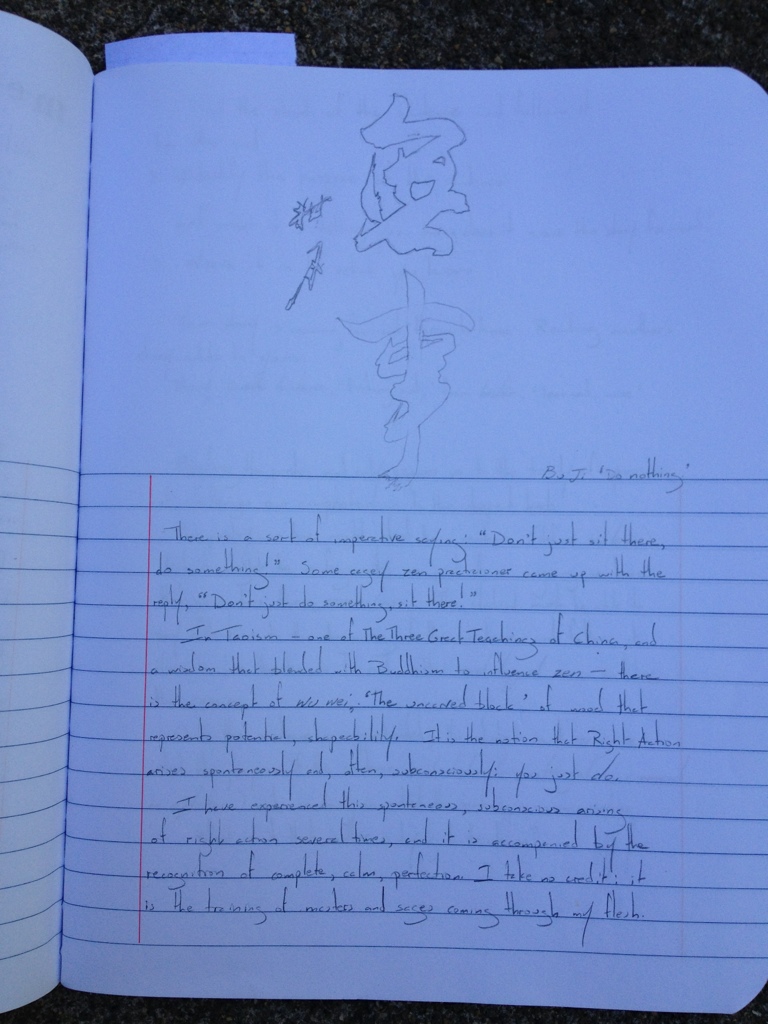 事
Bu Ji 'Do nothing'
There is a sort of imperative saying: "Don't just sit there,
do something!" Some cagey zen practicioner came up with the
reply, "Don't just do something, sit there!"
In Taoism – one of The Three Great Teachings of China, and
a wisdom that blended with Buddhism to influence zen – there
is the concept of wu wei; 'The uncarved block' of wood that
represents potential, shapeability. It is the notion that Right Action
arises spontaneously and, often, subconsciously: you just do.
I have experienced this spontaneous, subconscious arising
of right action several times, and it is accompanied by the
recognition of complete, calm, perfection. I take no credit; it
is the training of masters and sages coming through my flesh.